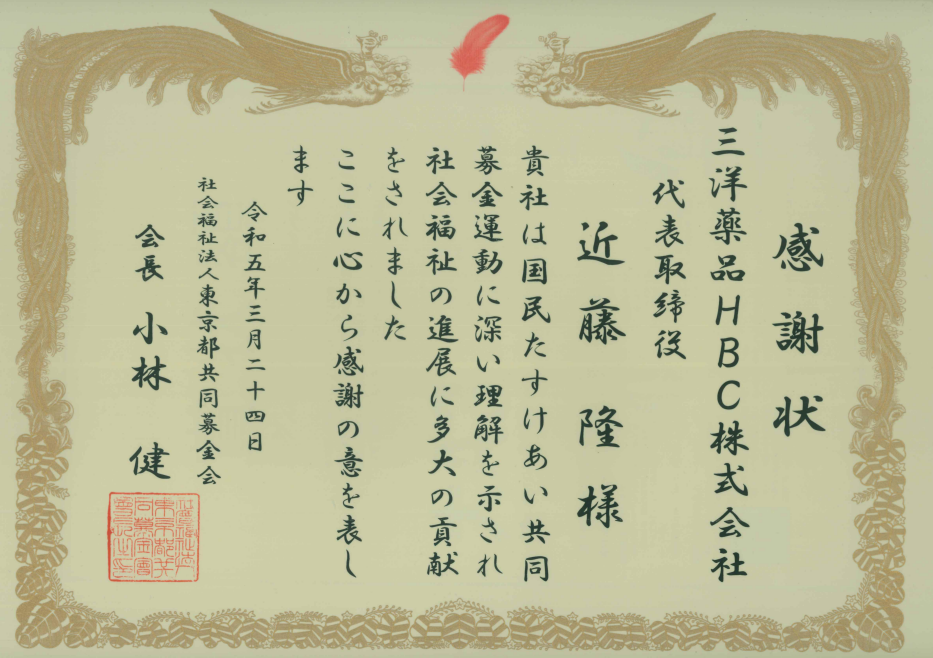 感謝状
三洋薬品HBC株式会社
代表取締役
近藤隆様
貴社は国民たすけあい共同
募金運動に深い理解を示され
社会福祉の進展に多大の貢献
をされました
ここに心から感謝の意を表し
ます
令和五年三月二十四日
社会福祉法人東京都共同募金会
会長 小林 健